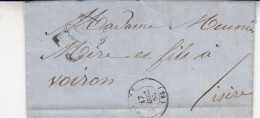 Madame Meunier
Mère et fils à
voiron
isère